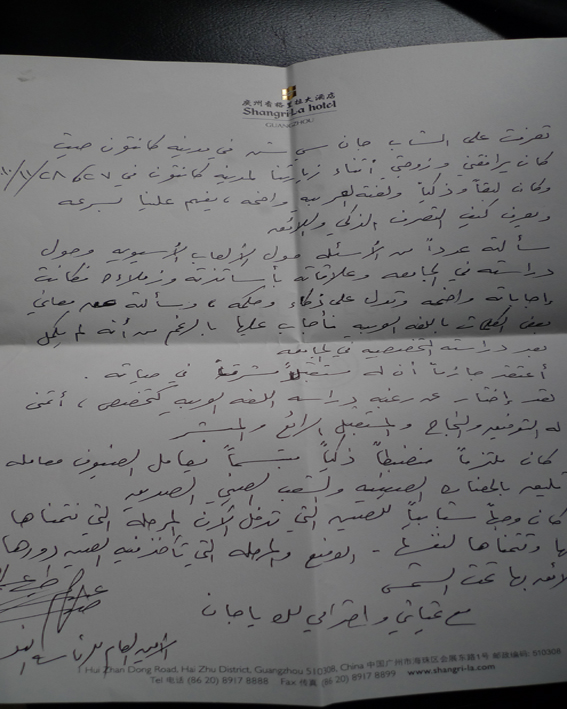 廣州香格里拉大酒店
Shangri-La hotel
GUANGZHOU
تعرفت على الشاب جان سي في مدينة كانتون حيث
كان يرافقني وزوجتي أثناء زيارتنا لمدينة كانتون في ٢٧ و ٢٨
وكان لبقاً وذكياً ولغته العربيه واضحه، يفهم علينا بسرعه
ويعرف كيف التصرف الذكي واللائق
سألته عدداً من الأسئله حول الألعاب الأسيويه وحول
دراسته في الجامعه وعلاقاته بأساتذته وزملاءه فكانت
إجاباته واضحه وتدل على ذكاء وحكمه، وسألته عن معاني
بعض الكلمات باللغه العربيه فأجاب عليها بالرغم من أنه لم يكمل
بعد دراسته التخصصيه في الجامعه
أعتقد جازماً أن له مستقبلاً مشرقاً في حياته.
لقد إختار عن رغبه دراسة اللغه العربيه كتخصص، أتمنى
له التوفيق والنجاح والمستقبل الرائع والمبشر
كان ملتزماً منضبطاً ذكياً مبتسماً يعامل الضيوف معامله
تليق بالحضاره الصينيه والشعب الصيني الصديق
كان وجهاً شبابياً للصين التي تدخل الآن المرحله التي نتمناها
لها وتتمناها لنفسها - الوضع والمرحله التي تأخذ فيه الصين دورها
اللائق بها تحت الشمس
مع تحياتي واحترامي لك يا جان
الأمين العام
1 Hui Zhan Dong Road, Hai Zhu District, Guangzhou 510308, China 中国广州市海珠区会展东路1号 邮政编码: 510308
Tel 电话 (86 20) 8917 8888 Fax 传真 (86 20) 8917 8899 www.shangri-la.com